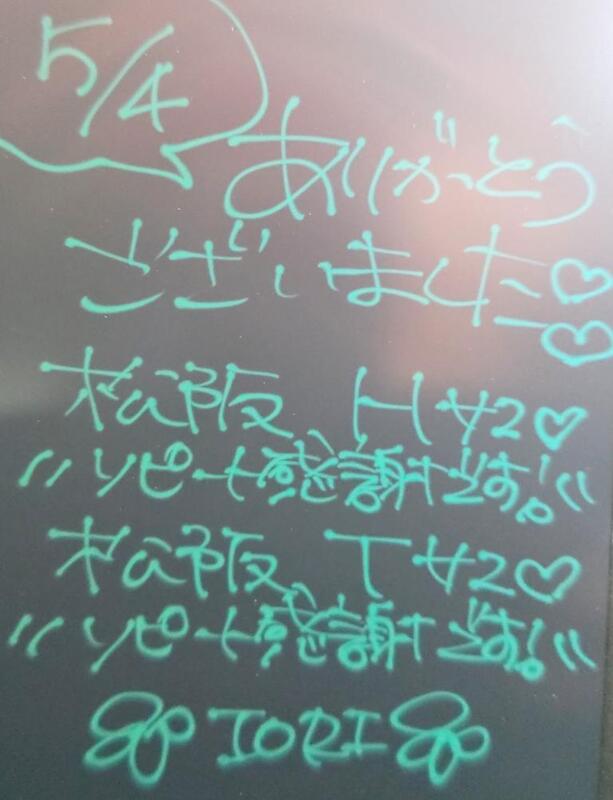 5/4
ありがとう
ございました♡♡
松阪 Hサン♡
〃リピート感謝です!。〃
松阪 Tサン♡
〃リピート感謝です!。〃
IORI